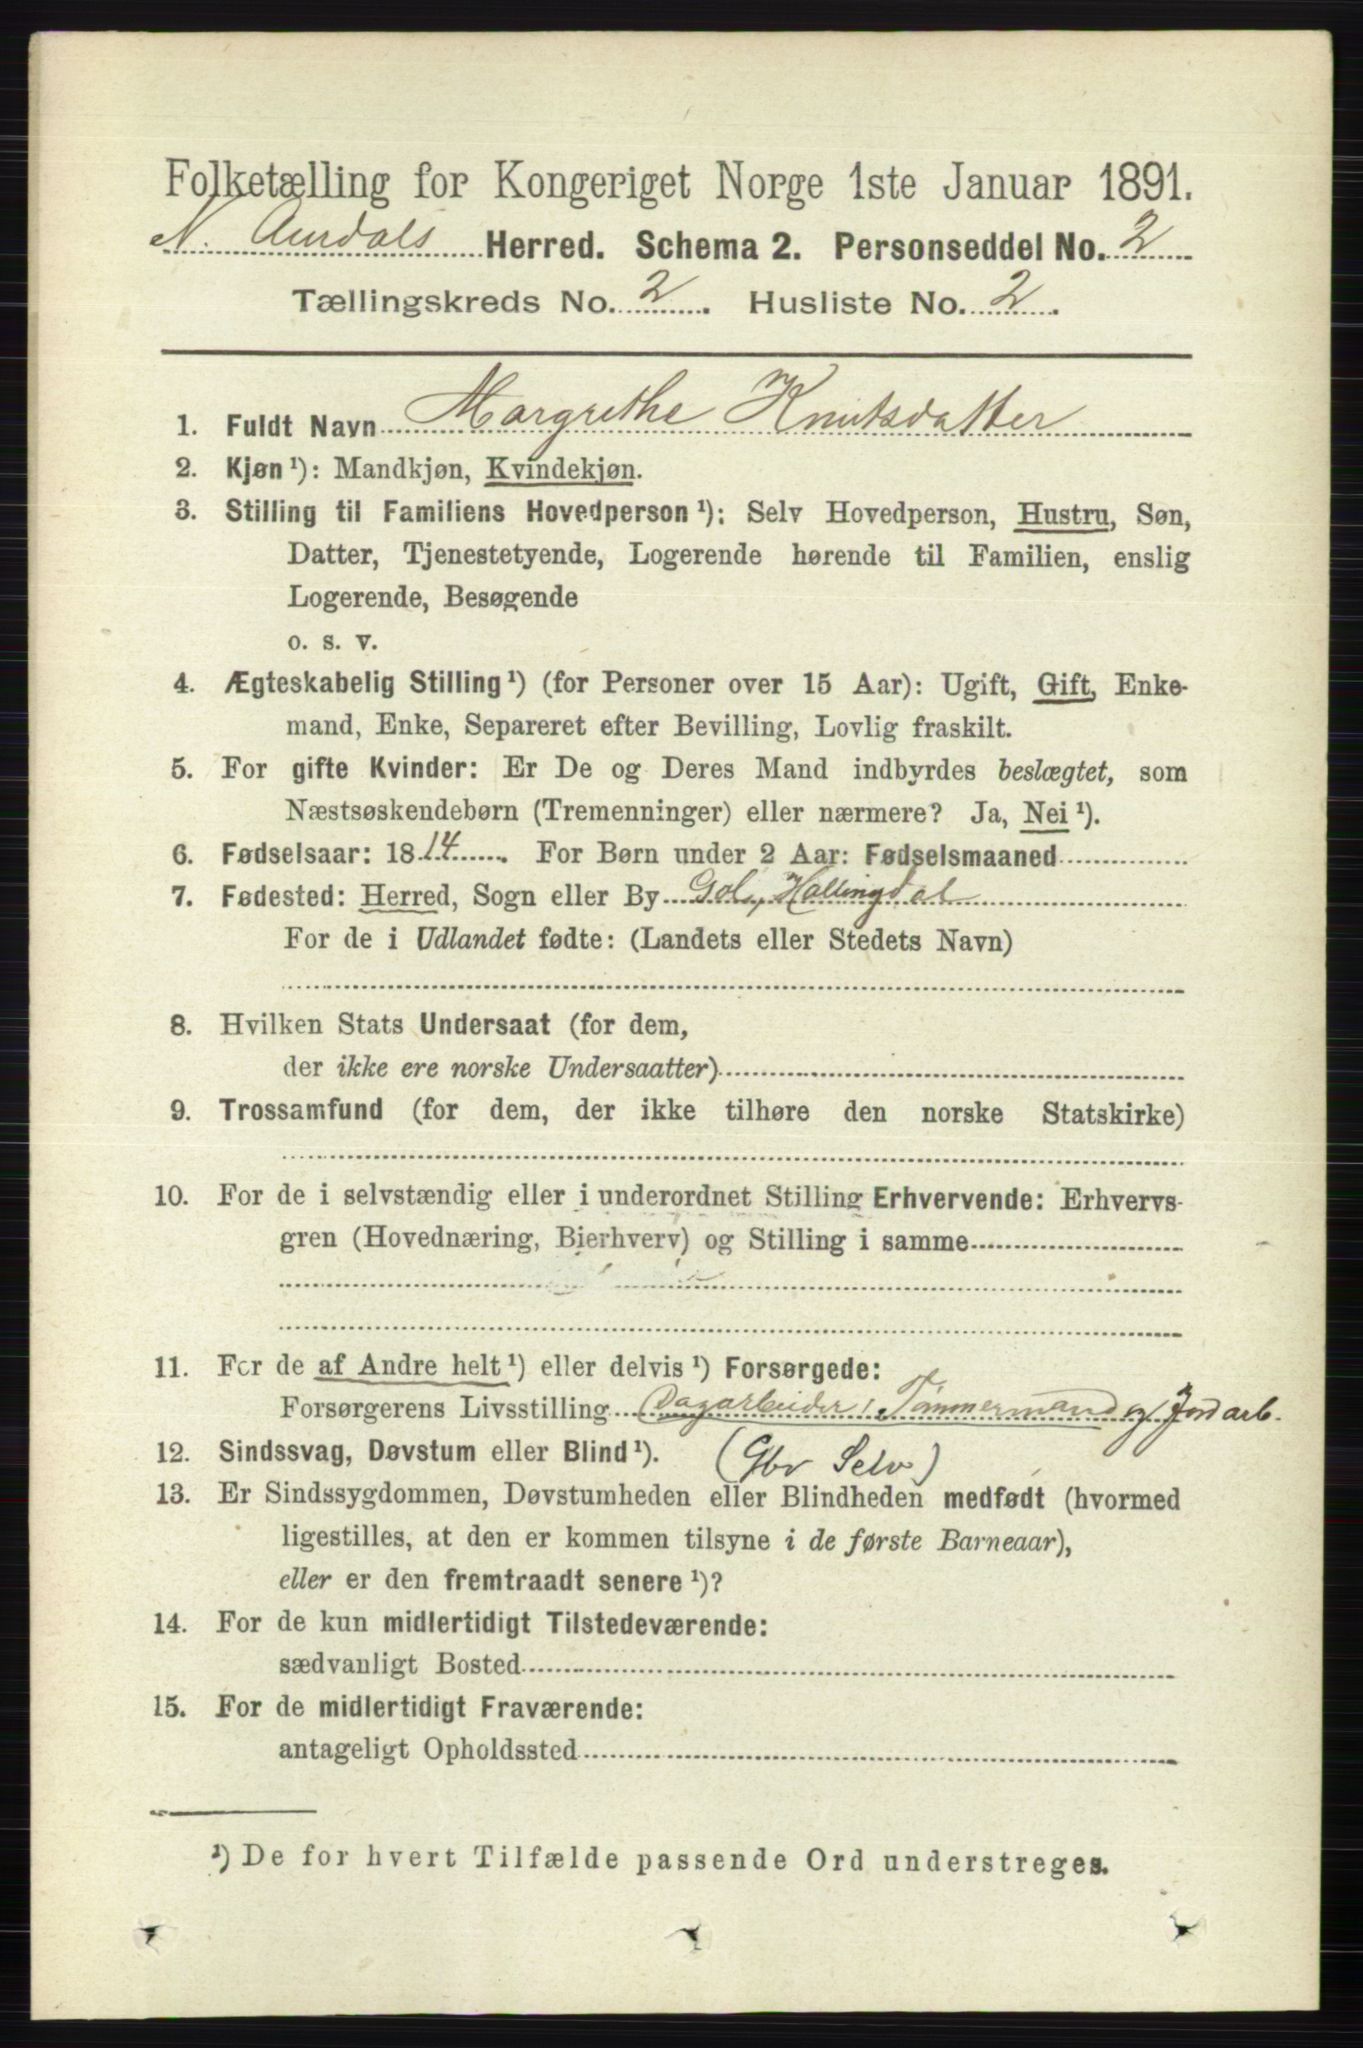 Folketælling for Kongeriget Norge 1ste Januar 1891.
N. Aurdals Herred. Schema 2. Personseddel No. 2
Tællingskreds No. 2. Husliste No. 2.
1. Fuldt Navn Margrethe Knutsdatter
2. Kjøn¹): Mandkjøn, Kvindekjøn.
3. Stilling til Familiens Hovedperson¹): Selv Hovedperson, Hustru, Søn,
Datter, Tjenestetyende, Logerende hørende til Familien, enslig
Logerende, Besøgende
o. s. v.
4. Ægteskabelig Stilling¹) (for Personer over 15 Aar): Ugift, Gift, Enke-
mand, Enke, Separeret efter Bevilling, Lovlig fraskilt.
5. For gifte Kvinder: Er De og Deres Mand indbyrdes beslægtet, som
Næstsøskendebørn (Tremenninger) eller nærmere? Ja, Nei¹).
6. Fødselsaar: 1814. For Børn under 2 Aar: Fødselsmaaned
7. Fødested: Herred, Sogn eller By Gol, Hallingdal
For de i Udlandet fødte: (Landets eller Stedets Navn)
8. Hvilken Stats Undersaat (for dem,
der ikke ere norske Undersaatter)
9. Trossamfund (for dem, der ikke tilhøre den norske Statskirke)
10. For de i selvstændig eller i underordnet Stilling Erhvervende: Erhvervs-
gren (Hovednæring, Bierhverv) og Stilling i samme
11. For de af Andre helt¹) eller delvis¹) Forsørgede:
Forsørgerens Livsstilling Dagarbeider, Tømmermand og Jordarb.
12. Sindssvag, Døvstum eller Blind¹). (Gbr Selv)
13. Er Sindssygdommen, Døvstumheden eller Blindheden medfødt (hvormed
ligestilles, at den er kommen tilsyne i de første Barneaar),
eller er den fremtraadt senere¹)?
14. For de kun midlertidigt Tilstedeværende:
sædvanligt Bosted
15. For de midlertidigt Fraværende:
antageligt Opholdssted
¹) De for hvert Tilfælde passende Ord understreges.